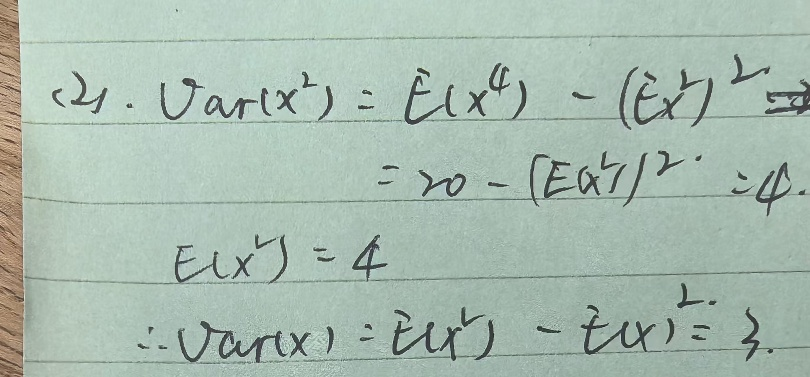 (2). Var(x²) = E(x⁴) - (Ex²)²
= 20 - (E(x²))² = 4.
E(x²) = 4
∴ Var(x) = E(x²) - E(x)² = 3.